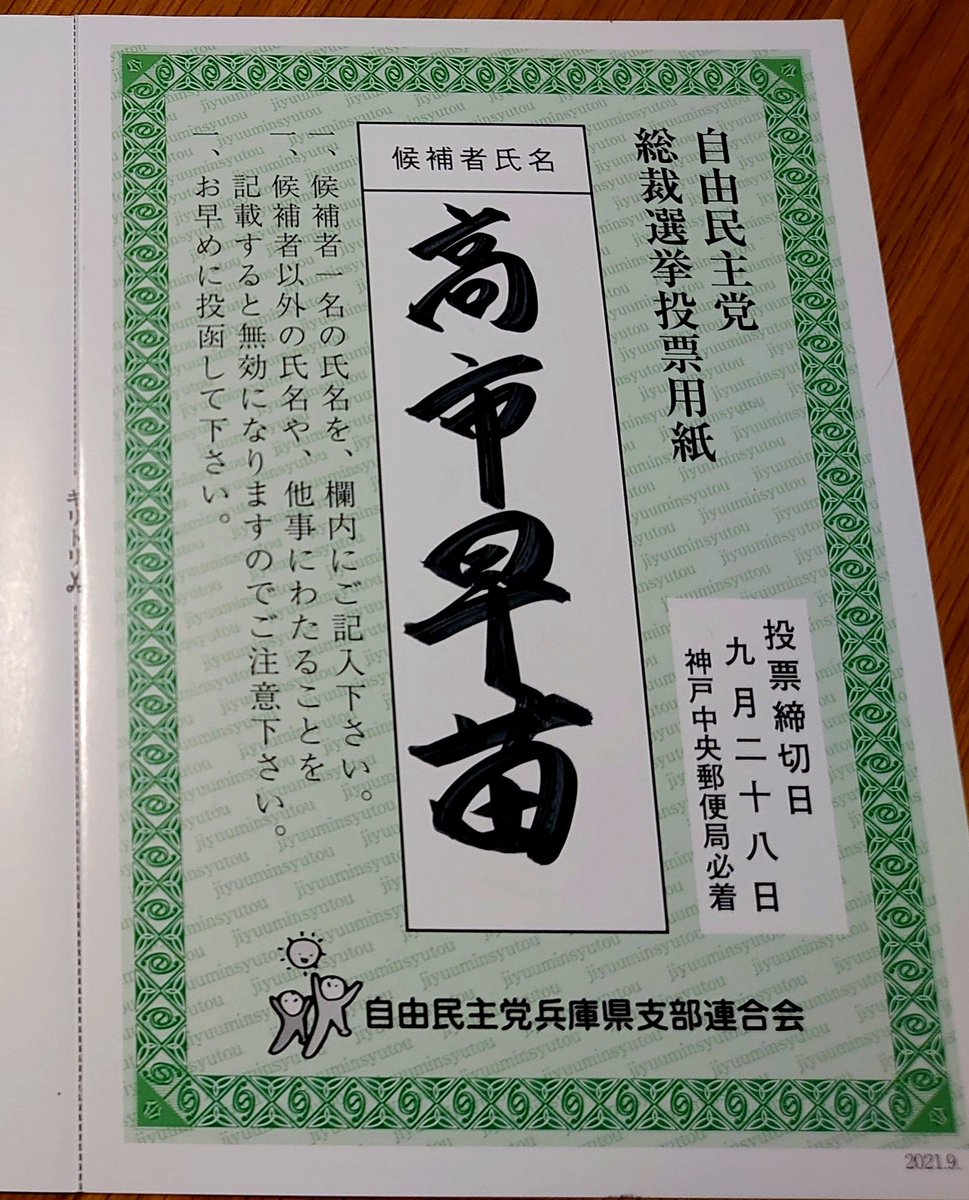 自由民主党
総裁選挙投票用紙
投票締切日
九月二十八日
神戸中央郵便局必着
候補者氏名
高市早苗
一、候補者一名の氏名を、欄内にご記入下さい。
一、候補者以外の氏名や、他事にわたることを
記載すると無効になりますのでご注意下さい。
一、お早めに投函して下さい。
自由民主党兵庫県支部連合会
キリトリ
2021.9.
jiyuuminsyutou